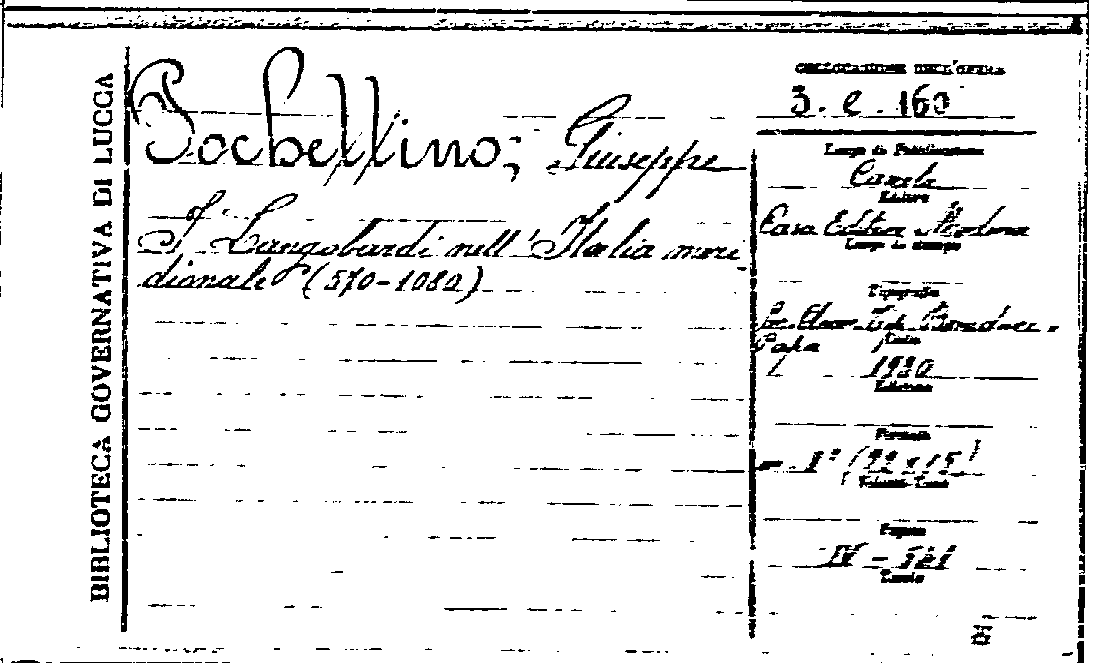 BIBLIOTECA GOVERNATIVA DI LUCCA
Pochettino, Giuseppe
I Langobardi nell'Italia meri
dionale (570-1080)
COLLOCAZIONE DELL'OPERA
3. e. 160
Luogo di Pubblicazione
Caserta
Editore
Casa Editrice Moderna
Luogo di stampa
Tipografia
Tip.
Papa
Data
1930
Edizione
Formato
(22 x 15)
Pagine
IV - 521
Tavole